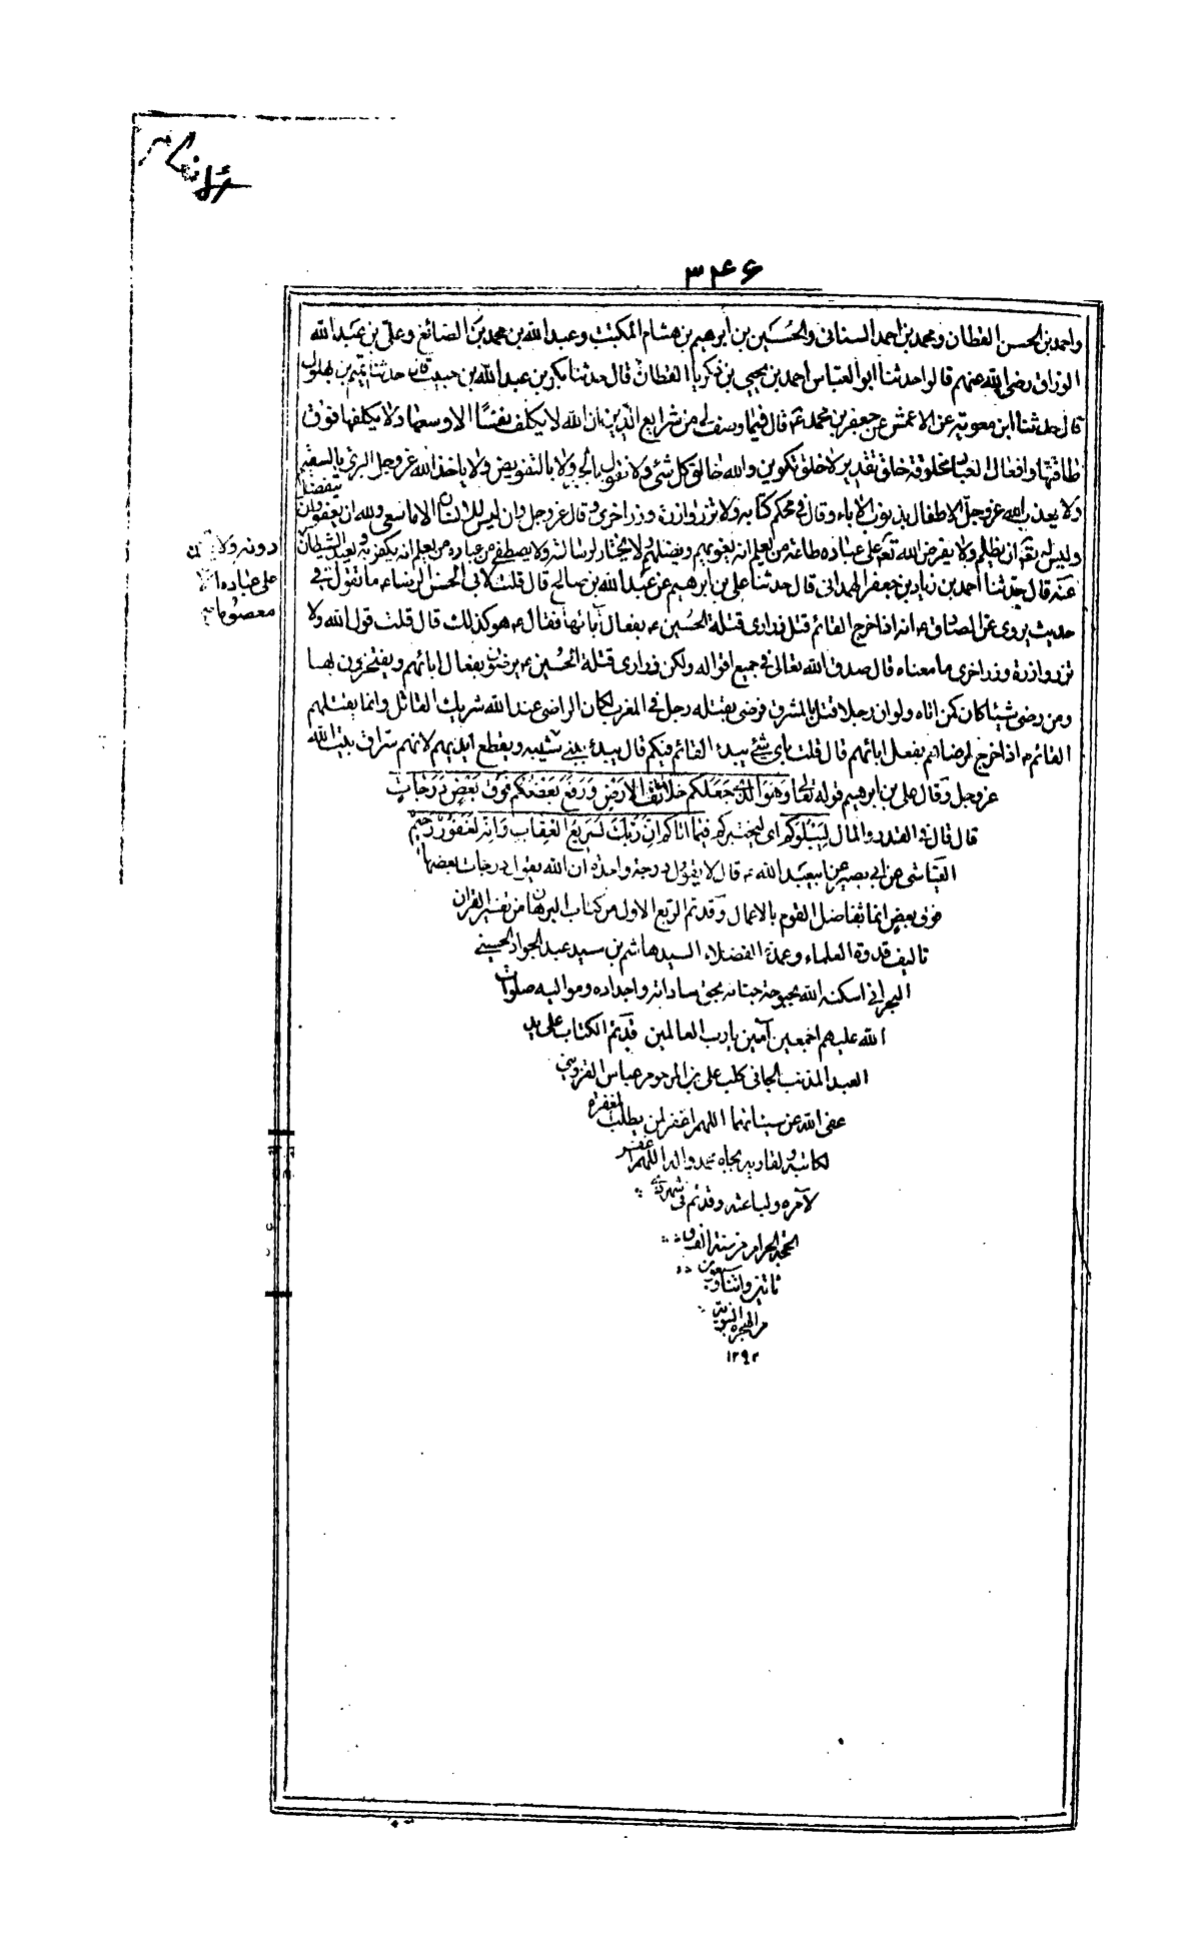 ٣۴۶
واحمد بن الحسن القطان ومحمد بن احمد السنانى والحسين بن ابرهيم بن هشام المكتب وعبد الله بن محمد بن الصائغ وعلى بن عبد الله
الوراق رضى الله عنهم قالوا حدثنا ابو العباس احمد بن يحيى بن زكريا القطان قال حدثنا بكر بن عبد الله بن حبيب قال حدثنا تميم بن بهلول
قال حدثنا ابن معوية عن الاعمش عن جعفر بن محمد ع قال فيما وصف لى من شرايع الدين ان الله لا يكلف نفسا الا وسعها ولا يكلفها فوق
طاقتها وافعال العباد مخلوقة خلق تقدير لا خلق تكوين والله خالق كل شئ ولا نقول بالجبر ولا بالتفويض ولا ياخذ الله عز وجل البرئ بالسقيم
ولا يعذب الله عز وجل الاطفال بذنوب الاباء وقال فى محكم كتابه ولا تزر وازرة وزر اخرى وقال عز وجل وان ليس للانسان الا ما سعى ولله ان يعفو وان يتفضل
وليس له تع ان يظلم ولا يفرض الله تع على عباده طاعة من يعلم انه يغويهم ويضلهم ولا يختار لرسالته ولا يصطفى من عباده من يعلم انه يكفر به ويعبد الشيطان
دونه ولا
على عباده الا
معصوما
عنه قال حدثنا احمد بن زياد بن جعفر الهمدانى قال حدثنا على بن ابرهيم عن عبد الله بن صالح قال قلت لابى الحسن الرضاء ع ما تقول فى
حديث يروى عن الصادق ع انه اذا خرج القائم قتل ذرارى قتلة الحسين ع بفعال آبائها فقال ع هو كذلك قال قلت قول الله ولا
تزر وازرة وزر اخرى ما معناه قال صدق الله تعالى فى جميع اقواله ولكن ذرارى قتلة الحسين ع يرضون بفعال ابائهم ويفتخرون بها
ومن رضى شيئا كان كمن اتاه ولو ان رجلا قتل بالمشرق فرضى بقتله رجل فى المغرب لكان الراضى عند الله شريك القاتل وانما يقتلهم
القائم ع اذا خرج لرضائهم بفعل ابائهم قال قلت باى شئ يبدء القائم فيكم قال يبدء ببنى شيبه ويقطع ايديهم لانهم سراق بيت الله
عز وجل وقال على بن ابرهيم قوله تعالى وهو الذى جعلكم خلائف الارض ورفع بعضكم فوق بعض درجات
قال قال فى القدر والمال ليبلوكم اى ليختبركم فيما اتاكم ان ربك لسريع العقاب وانه لغفور رحيم
العياشى عن ابى بصير عن ابيعبد الله ع قال لا يقول درجة واحدة ان الله يقول درجات بعضها
فوق بعض انما تفاضل القوم بالاعمال وقد تم الربع الاول من كتاب البرهان من تفسير القران
تاليف قدوة العلماء وعمدة الفضلاء السيد هاشم بن سيد عبد الجواد الحسينى
البحرانى اسكنه الله بحبوحة جنانه بحق ساداته واجداده ومواليه صلوات
الله عليهم اجمعين آمين يا رب العالمين قد تم الكتاب على يد
العبد المذنب الجانى كلب على بن المرحوم عباس القزوينى
عفى الله عن سيئاتهما اللهم اغفر لمن يطلب المغفرة
لكاتبه ولقاريه بجاه محمد واله اللهم اغفر
لآمره ولباعثه وقد تم فى شهر ذى
الحجة الحرام من سنة الف و
مائتين واثنا وتسعون
من الهجرة النبوية
١٢٩٢